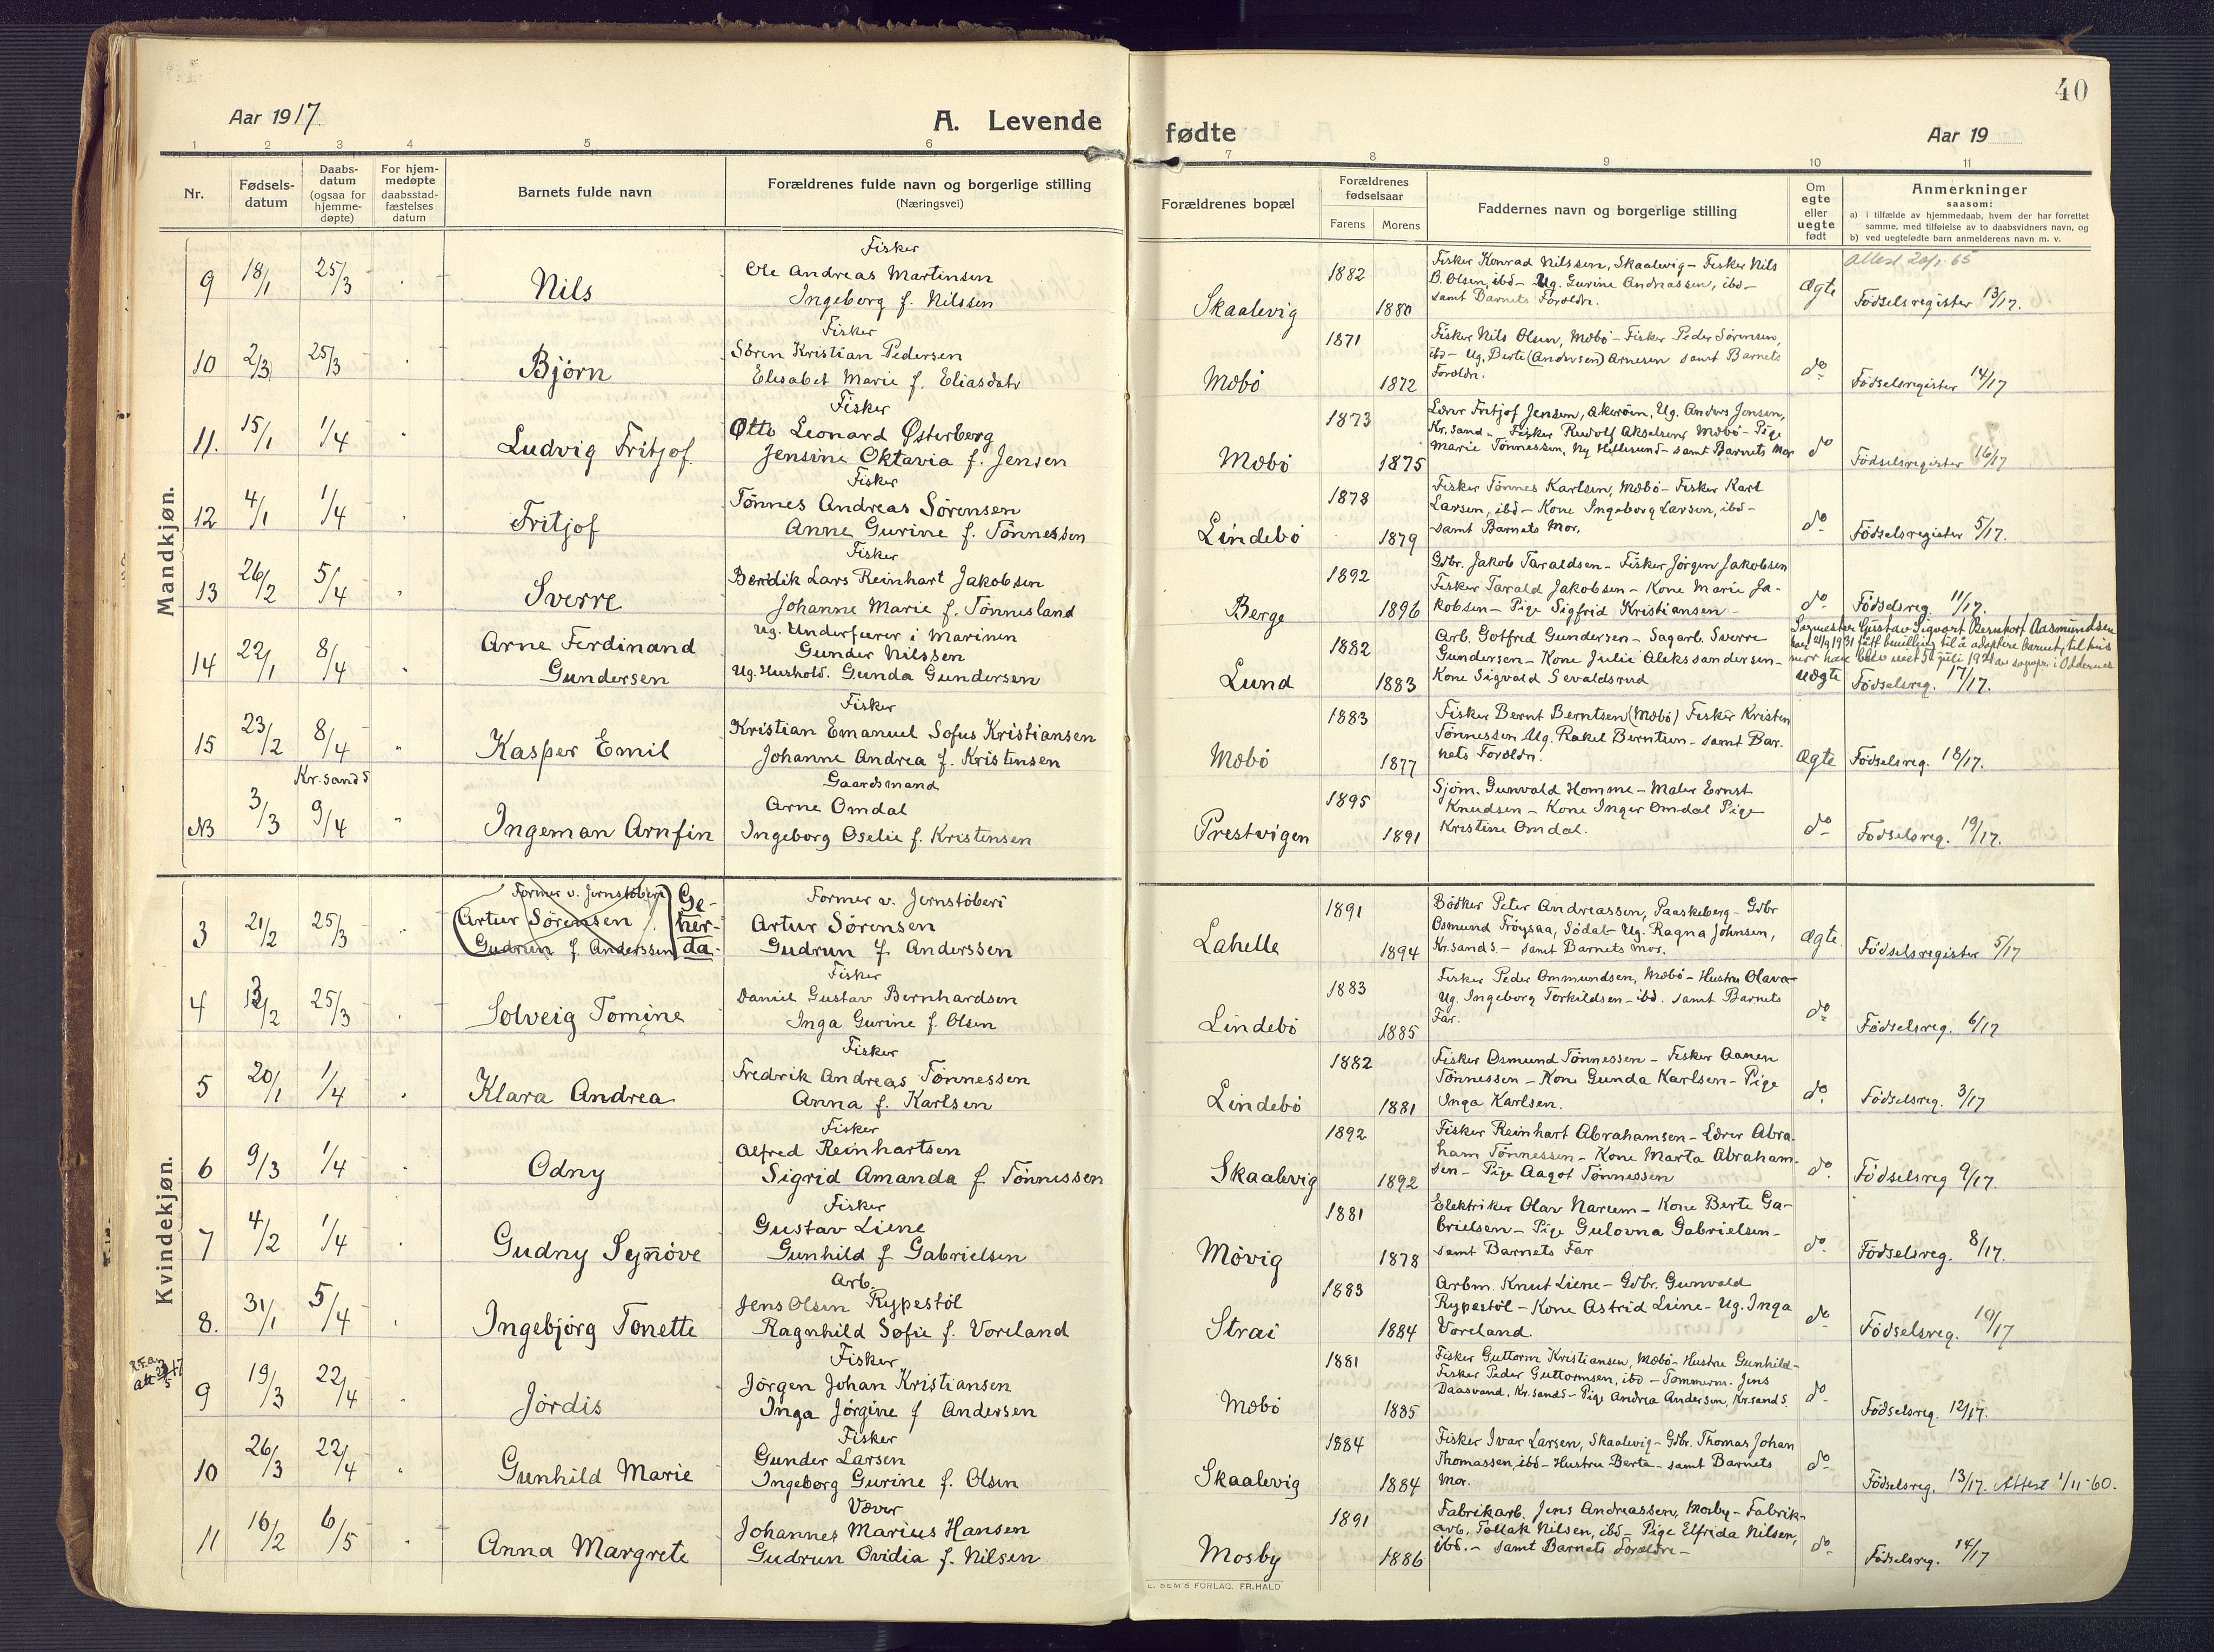 40
Aar 1917
A. Levende
fødte
Aar 19
1 2 3 4 5 6 7 8 9 10 11
Nr.
Fødsels-
datum
Daabs-
datum
(ogsaa for
hjemme-
døpte)
For hjem-
medøpte
daabsstad-
fæstelses
datum
Barnets fulde navn
Forældrenes fulde navn og borgerlige stilling
(Næringsvei)
Forældrenes bopæl
Forældrenes
fødselsaar
Farens Morens
Faddernes navn og borgerlige stilling
Om
egte
eller
uegte
født
Anmerkninger
saasom:
a) i tilfælde av hjemmedaab, hvem der har forrettet
samme, med tilføielse av to daabsvidners navn, og
b) ved uegtefødte barn anmelderens navn m. v.
Mandkjøn.
9 18/1 25/3 Nils
Fisker
Ole Andreas Martinsen
Ingeborg f. Nilssen
Skaalevig 1882 1880
Fisker Konrad Nilssen, Skaalevig – Fisker Nils
B. Olsen, ibd – Ug. Gurine Andreassen, ibd –
samt Barnets Foreldr.
Ægte
Attest 20/1-65
Fødselsregister 13/17.
10 2/3 25/3 Bjørn
Fisker
Søren Kristian Pedersen
Elisabet Marie f. Eliasdatr
Mæbø 1871 1872
Fisker Nils Olsen, Mæbø – Fisker Peder Sørensen,
ibd – Ug. Berte (Andersen) Arnesen samt Barnets
Foreldr.
do
Fødselsregister 14/17
11. 15/1 1/4 Ludvig Fritjof
Fisker
Otto Leonard Østerberg
Jensine Oktavia f. Jensen
Mæbø 1873 1875
Lærer Fritjof Jensen, Akerøen, Ug. Anders Jensen,
Kr.sand – Fisker Rudolf Akselsen, Mæbø – Pige
Marie Tønnessen, Ny Hellesund – samt Barnets Mor
do
Fødselsregister 16/17
12 4/1 1/4 Fritjof
Fisker
Tønnes Andreas Sørensen
Anne Gurine f. Tønnessen
Lindebø 1878 1879
Fisker Tønnes Karlsen, Mæbø – Fisker Karl
Larsen, ibd – Kone Ingeborg Larsen, ibd –
samt Barnets Mor.
do
Fødselsregister 5/17.
13 26/2 5/4 Sverre
Fisker
Berdik Lars Reinhart Jakobsen
Johanne Marie f. Tønnesland
Berge 1892 1896
Gdbr. Jakob Taraldsen – Fisker Jørgen Jakobsen
Fisker Tarald Jakobsen – Kone Marie Ja-
kobsen – Pige Sigfrid Kristiansen –
do
Fødselsreg. 11/17.
14 22/1 8/4 Arne Ferdinand
Gundersen
Ug. Underfuerer i Marinen
Gunder Nilssen
Ug. Hushold. Gunda Gundersen
Lund 1882 1883
Arb. Gotfred Gundersen – Sagarb. Sverre
Gundersen – Kone Julie Aleksandersen –
Kone Sigvald Sevaldsrud
uægte
Gustav Sigvart Berntorf Aasmundsen
har 21/9 1931 fått bevilling til å adoptere barnet, til hvis
mor han blev viet 5te juli 1921 av sognepr. i Oddernes
Fødselsreg. 17/17.
15 23/2 8/4 Kasper Emil
Fisker
Kristian Emanuel Sofus Kristiansen
Johanne Andrea f. Kristensen
Mæbø 1883 1877
Fisker Bernt Berntsen (Mæbø) Fisker Kristen
Tønnessen Ug. Rakel Berntsen – samt Bar-
nets Foreldr.
Ægte
Fødselsreg. 18/17.
NB 3/3 Kr.sand S 9/4 Ingeman Arnfin
Gaardsmand
Arne Omdal
Ingeborg Oselie f. Kristensen
Prestvigen 1895 1891
Sjøm. Gunvald Homme – Maler Ernst
Knudsen – Kone Inger Omdal Pige
Kristine Omdal.
do
Fødselsreg. 19/17.
Kvindekjøn.
3 21/2 25/3
Former v. Jernstøberi
Artur Sørensen
Gudrun f. Anderssen
Ge-
ther-
da
Former v. Jernstøberi
Artur Sørensen
Gudrun f Anderssen
Lahelle 1891 1894
Bødker Peter Andreassen, Paaskeberg – Gdbr
Osmund Frøysaa, Södal – Ug. Ragna Johnsen,
Kr.sand S – samt Barnets mor.
Ægte
Fødselsregister 5/17
4 12/2 25/3 Solveig Tomine
Fisker
Daniel Gustav Bernhardsen
Inga Gurine f. Olsen
Lindebø 1883 1885
Fisker Peder Ommundsen, Mæbø – Hustru Olava –
Ug. Ingeborg Torkildsen – ibd. samt Barnets
Far.
do
Fødselsreg. 6/17
5 20/1 1/4 Klara Andrea
Fisker
Fredrik Andreas Tønnessen
Anna f. Karlsen
Lindebø 1882 1881
Fisker Osmund Tønnessen – Fisker Aanen
Tønnessen – Kone Gunda Karlsen – Pige
Inga Karlsen.
do
Fødselsreg. 3/17
6 9/3 1/4 Odny
Fisker
Alfred Reinhartsen
Sigrid Amanda f Tønnessen
Skaalevig 1892 1892
Fisker Reinhart Abrahamsen – Lærer Abra-
ham Tønnessen – Kone Marta Abraham-
sen – Pige Aagot Tønnessen
do
Fødselsreg 9/17.
7 4/2 1/4 Gudny Synøve
Fisker
Gustav Liene
Gunhild f Gabrielsen
Møvig 1881 1878
Elektriker Olav Narum – Kone Berte Ga-
brielsen – Pige Gulovna Gabrielsen –
samt Barnets Far
do
Fødselsreg. 8/17.
8. 31/1 5/4 Ingebjørg Tonette
Arb.
Jens Olsen Rypestöl
Ragnhild Sofie f. Voreland
Strai 1883 1884
Arbm. Knut Liene – Gdbr. Gunvald
Rypestöl – Kone Astrid Liene – Ug. Inga
Voreland.
do
Fødselsreg. 10/17
9 19/3 22/4 Jørdis
Fisker
Jørgen Johan Kristiansen
Inga Jørgine f Andersen
Mæbø 1881 1885
Fisker Guttorm Kristiansen, Mæbø – Hustru Gunhild –
Fisker Peder Guttormsen, ibd – Tømmerm. Jens
Daasvand, Kr.sand S – Pige Andrea Andersen, Kr.sand S.
do
Fødselsreg. 12/17.
10 26/3 22/4 Gunhild Marie
Fisker
Gunder Larsen
Ingeborg Gurine f. Olsen
Skaalevig 1884 1884
Fisker Ivar Larsen, Skaalevig – Gdbr. Thomas Johan
Thomassen, ibd – Hustru Berta – samt Barnets
Mor.
do
Fødselsreg. 13/17. Attest 1/11-60.
11 16/2 6/5 Anna Margrete
Væver
Johannes Marius Hansen
Gudrun Ovidia f. Nilsen
Mosby 1891 1886
Fabrikarb. Jens Andreassen, Mosby – Fabrik-
arb. Tollak Nilsen, ibd – Pige Elfrida Nilsen,
ibd. – samt Barnets Forældre –
do
Fødselsreg. 14/17
E. SEM'S FORLAG, FR.HALD